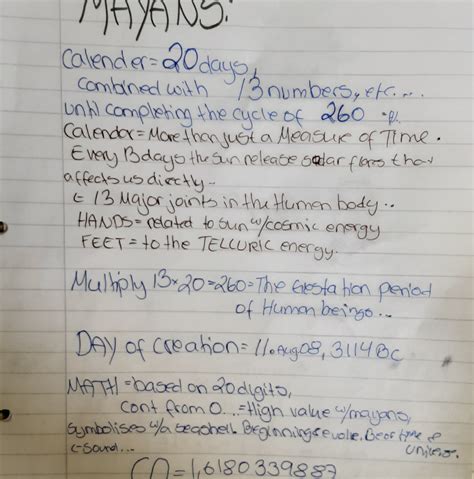 MAYANS:
Calender = 20 days,
combined with 13 numbers, etc....
until completing the cycle of 260
Calendar = More than just a Measure of Time.
Every 13 days the sun release solar flares that
affects us directly..
13 Major joints in the Human body..
HANDS = related to sun w/cosmic energy
FEET = to the TELLURIC energy.
Multiply 13x20=260=The Gestation period
of Human beings...
DAY of creation = 11. Aug 08, 3114 BC
MATH = based on 20 digits,
cont from 0... = High value w/mayans,
symbolises w/a seashell. Beginnings evolve. time &
Universe.
sound...
=1,6180339887